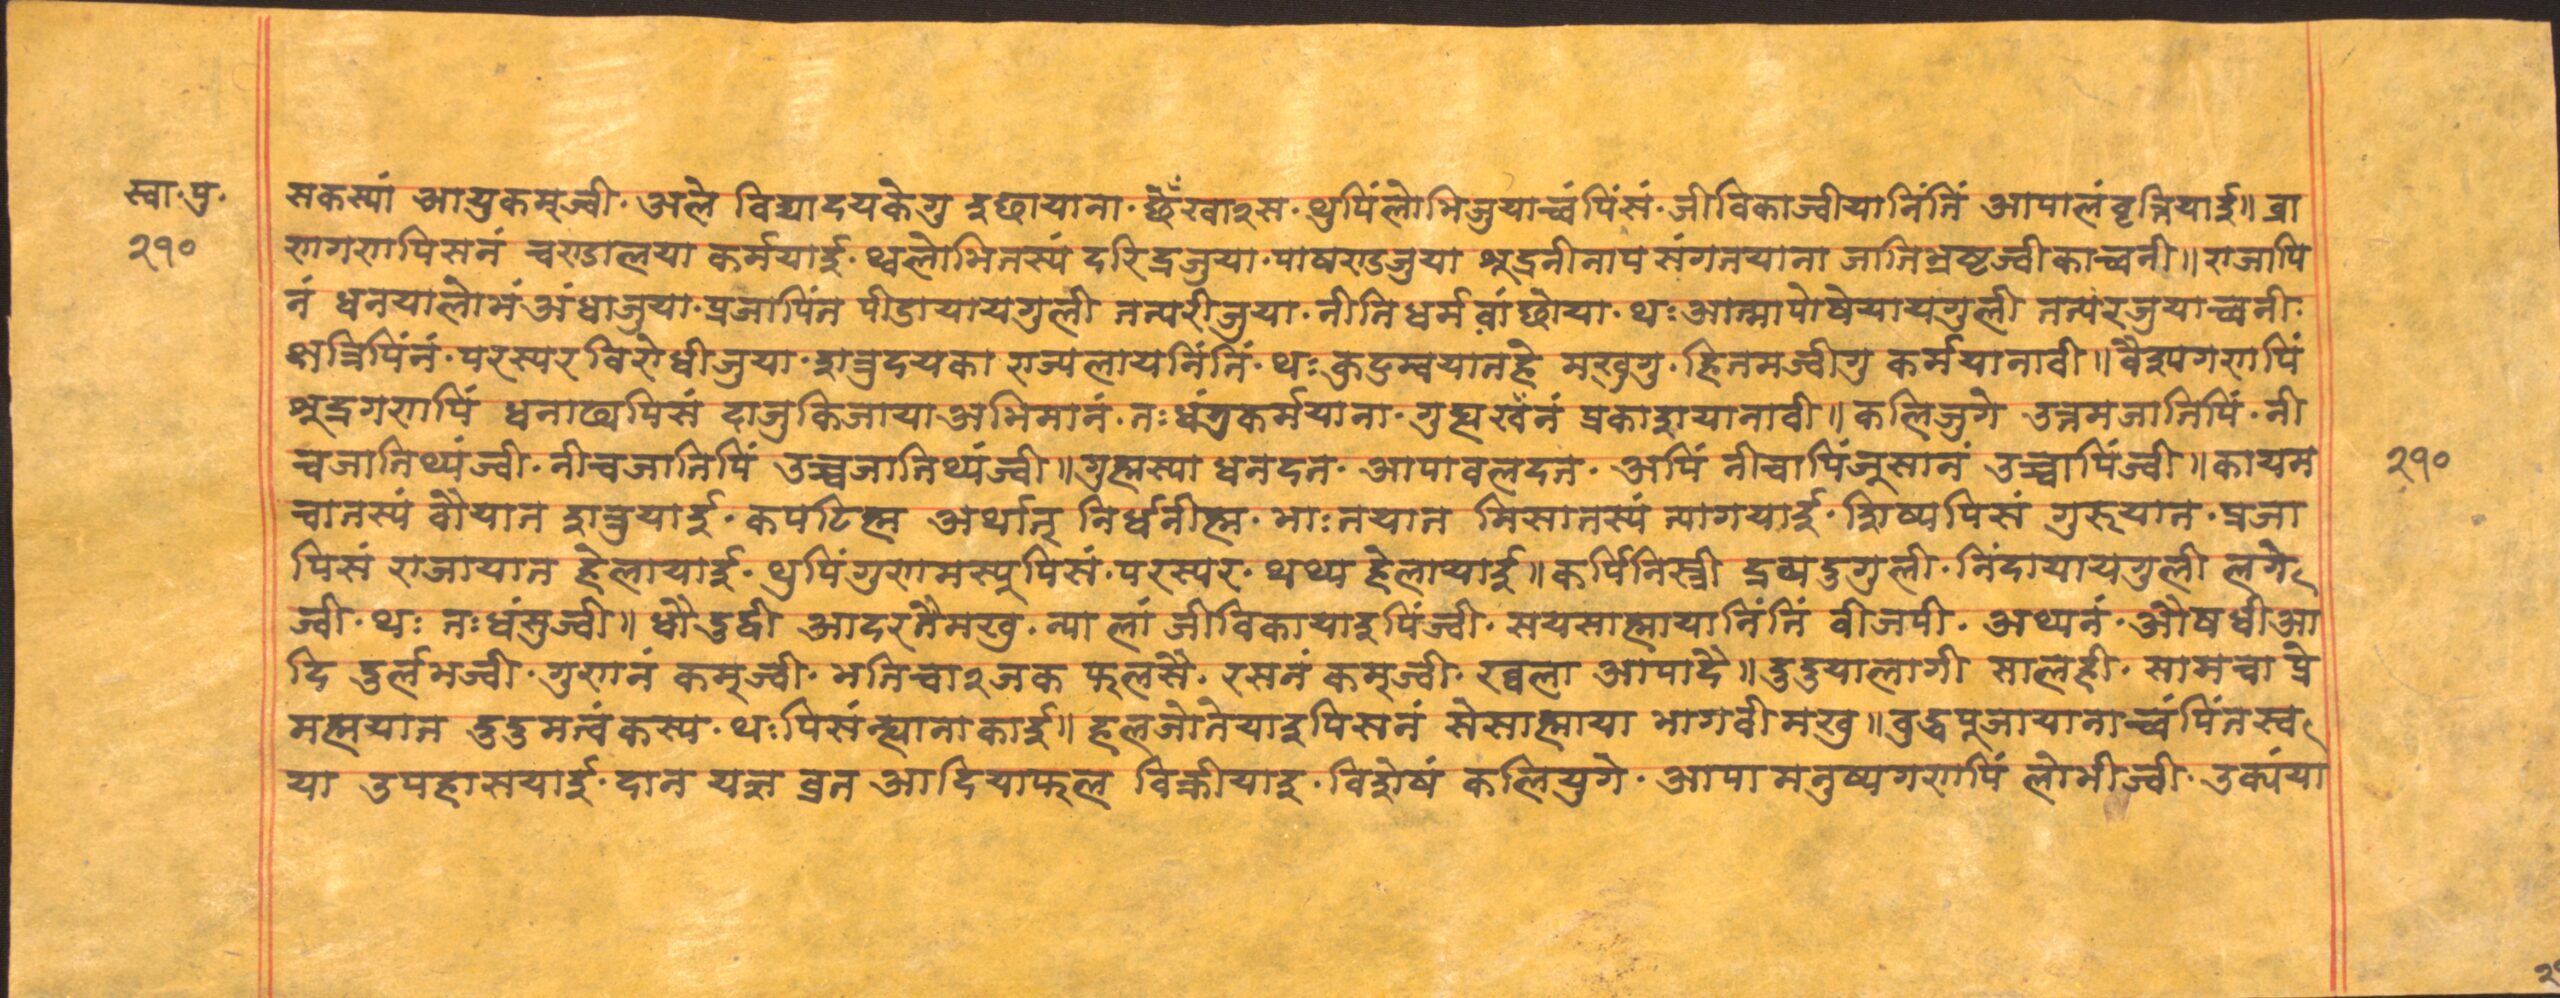 स्वा·पु·
२१०
सकस्यां आयुकमूज्वी·अले विद्यादयकेगु इछायाना·छेँखाःस·थुपिंलोभिजुयाच्वंपिंसं·जीविकाज्वीयानिंतिं आपालंवृत्तियाई॥ब्रा
ह्मणपिसनं चण्डालया कर्मयाई·थ्वलोभितस्यं दरिद्रजुया·पाषण्डजुया शूद्रनीनाप संगतयाना जातिभ्रष्टज्वीकाच्वनी॥राजापि
नं धनयालोभं अंधाजुया·प्रजापिंत पीडायायेगुली तत्परीजुया·नीतिधर्म वांछोया·थः आत्मापोषेयायगुली तत्परजुयाच्वनी·
क्षत्रिपिंनं·परस्पर विरोधीजुया·शत्रुदयका राज्यलायनिंतिं·थः कुटुम्वयातहे मखुगु·हितमज्वीगु कर्मयानावी॥वैश्यगणपिं
शूद्रगणपिं धनाढ्यपिसं दाजुकिजाया अभिमानं·तःधंगुकर्मयाना·गुह्यखँनं प्रकाशयानावी॥कलिजुगे उत्तमजातिपिं·नी
चजातिथ्यंज्वी·नीचजातिपिं उच्चजातिथ्यंज्वी॥गुह्मस्या धनदत·आपावलदत·अपिं नीचापिंजुसानं उच्चापिंज्वी॥कायम
चातस्यं वौयात शत्रुयाई·कपटिह्म अर्थात् निर्धनीह्म·भाःतयात मिसातस्यं त्यागयाई·शिष्यपिसं गुरूयात·प्रजा
पिसं राजायात हेलायाई·थुपिंगुणमस्यूपिसं·परस्पर·थथ्य हेलायाई॥कपिंनिस्त्री द्रव्यदुगुली·निंदायायगुली लगे
ज्वी·थः तःधंसुज्वी॥धौदुद्वी आदरतैमखु·न्या लां जीविकायाइपिंज्वी·सयसाह्मायानिंतिं वीजपी·अथ्यनं·औषधीआ
दि दुर्लभज्वी·गुणनं कमूज्वी·भतिचाःजक फलसै·रसनं कमूज्वी·रव्वला आपादै॥दुदुयालागी सालही·सामचा प्रे
मह्मयात दुदुमत्वंकस्य·थःपिसंन्ह्यानाकाई॥हलजोतेयाइपिसनं सेसाह्माया भागवीमखु॥वुद्धपूजायानाच्वंपिंतस्व
या उपहासयाई·दान यज्ञ व्रत आदियाफल विक्रीयाइ·विशेषं कलियुगे·आपा मनुष्यगणपिं लोभीज्वी·उक्यंया
२१०